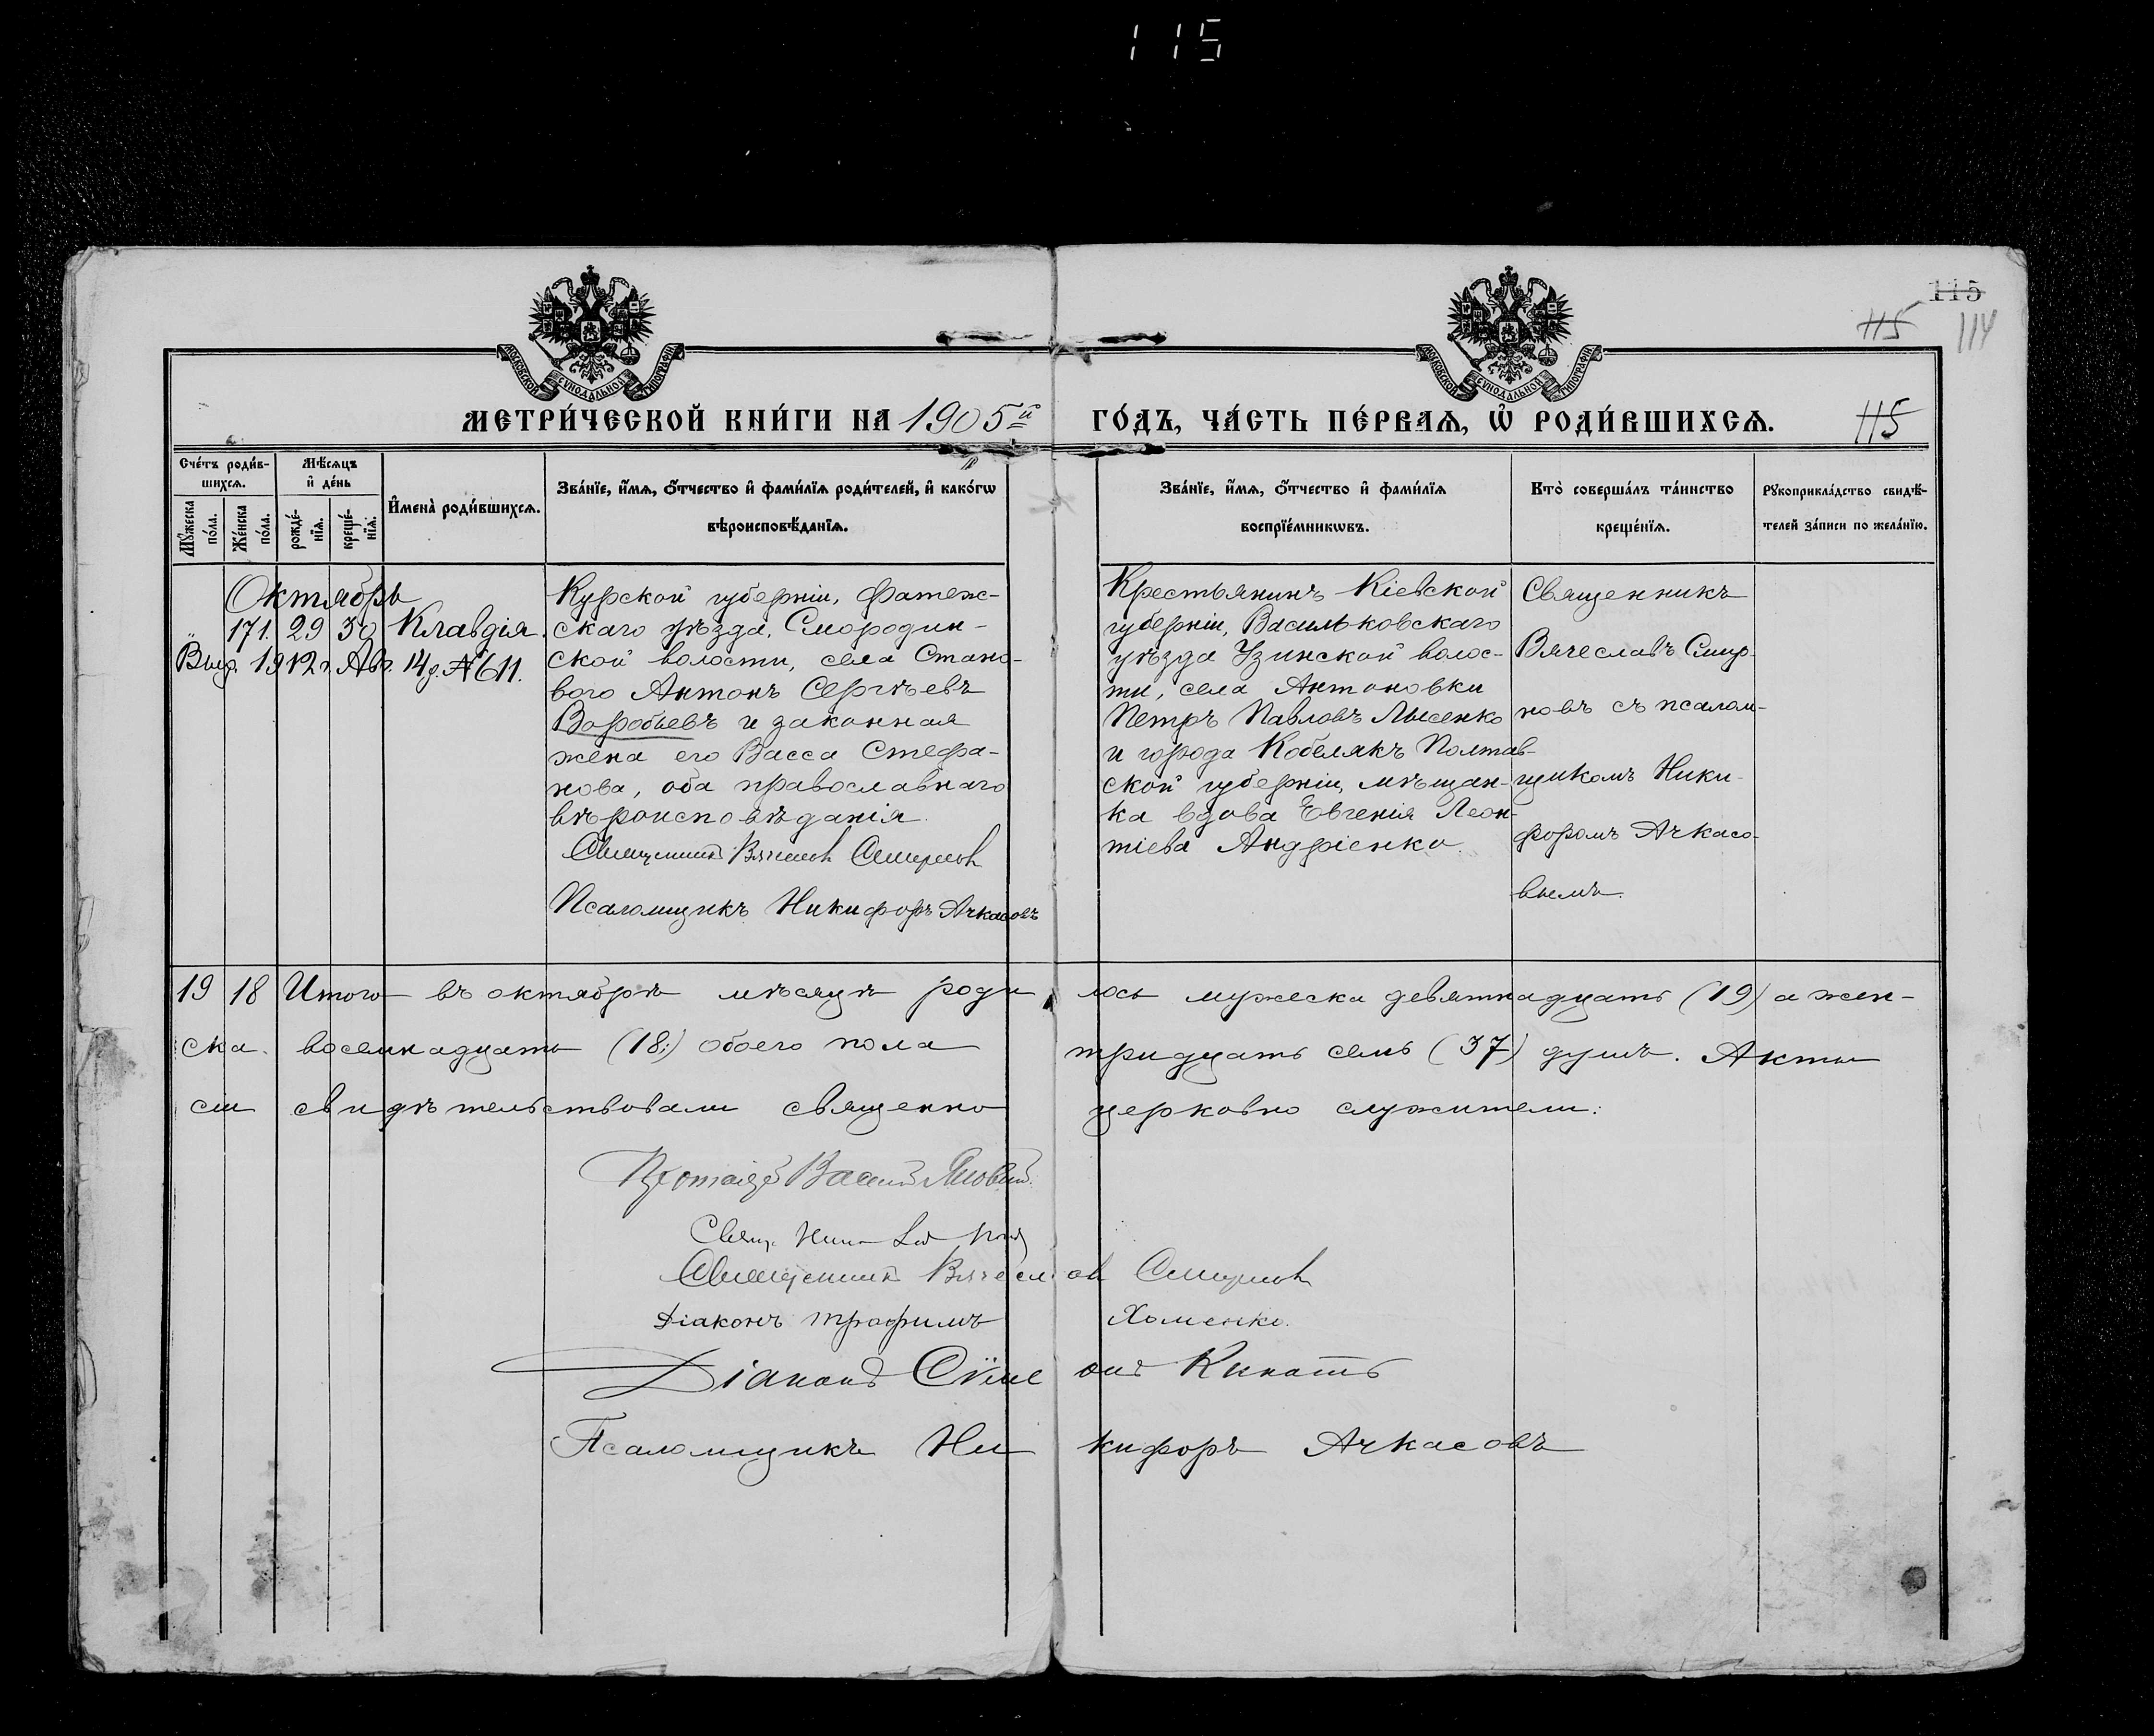 115
115
115 114
МОСКОВСКОЙ СУНОДАЛЬНОЙ ТИПОГРАФІИ
МОСКОВСКОЙ СУНОДАЛЬНОЙ ТИПОГРАФІИ
МЕТРИ́ЧЕСКОЙ КНИ́ГИ НА 1905й ГО́ДЪ, ЧА́СТЬ ПЕ́РВАѦ, Ѡ҆ РОДИ́ВШИХСѦ.
115
Сче́тъ роди́в-
шихсѧ.
Мꙋ́жеска по́ла.
Же́нска по́ла.
Мѣ́сѧцъ
и҆ де́нь
рожде́-
нїѧ.
креще́-
нїѧ.
И҆мена̀ роди́вшихсѧ.
Зва́нїе, и҆́мѧ, ѻ҆́тчество и҆ фами́лїѧ роди́телей, и҆ како́гѡ
вѣроисповѣ́данїѧ.
Зва́нїе, и҆́мѧ, ѻ҆́тчество и҆ фами́лїѧ
воспрїе́мникѡвъ.
Кто̀ соверша́лъ та́инство
креще́нїѧ.
Рꙋкоприкла́дство свидѣ́-
телей за́писи по жела́нїю.
Октябрь
171. 29 30 Клавдія.
Выд. 1912 г. Авг. 14 д. № 611.
Курской губерніи, Фатеж-
скаго уѣзда, Смородин-
ской волости, села Стано-
вого Антонъ Сергѣевъ
Воробьевъ и законная
жена его Васса Стефа-
нова, оба православнаго
вѣроисповѣданія.
Священникъ Вячеславъ Смирновъ
Псаломщикъ Никифоръ Ачкасовъ
Крестьянинъ Кіевской
губерніи, Васильковскаго
уѣзда Узинской волос-
ти, села Антоновки
Петръ Павловъ Лысенко
и города Кобелякъ Полтав-
ской губерніи, мѣщан-
ка вдова Евгенія Леон-
тіева Андріенко.
Священникъ
Вячеславъ Смир-
новъ съ псалом-
щикомъ Ники-
форомъ Ачкасо-
вымъ.
19 18 Итого въ октябрѣ мѣсяцѣ роди лось мужеска девятнадцать (19) а жен-
ска восемнадцать (18:) обоего пола тридцать семь (37) душъ. Акты
сіи свидѣтельствовали священно церковно служители:
Протоіер Василій
Свящ.
Священникъ Вячеславъ Смирновъ
Діаконъ Трофимъ Хоменко.
Діаконъ Сѵмеонъ Кикоть
Псаломщикъ Никифоръ Ачкасовъ